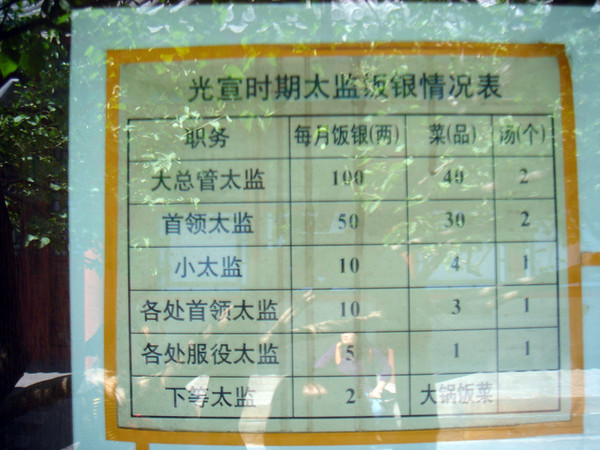 光宣时期太监饭银情况表
职务 每月饭银(两) 菜(品) 汤(个)
大总管太监 100 40 2
首领太监 50 30 2
小太监 10 4 1
各处首领太监 10 3 1
各处服役太监 5 1 1
下等太监 2 大锅饭菜